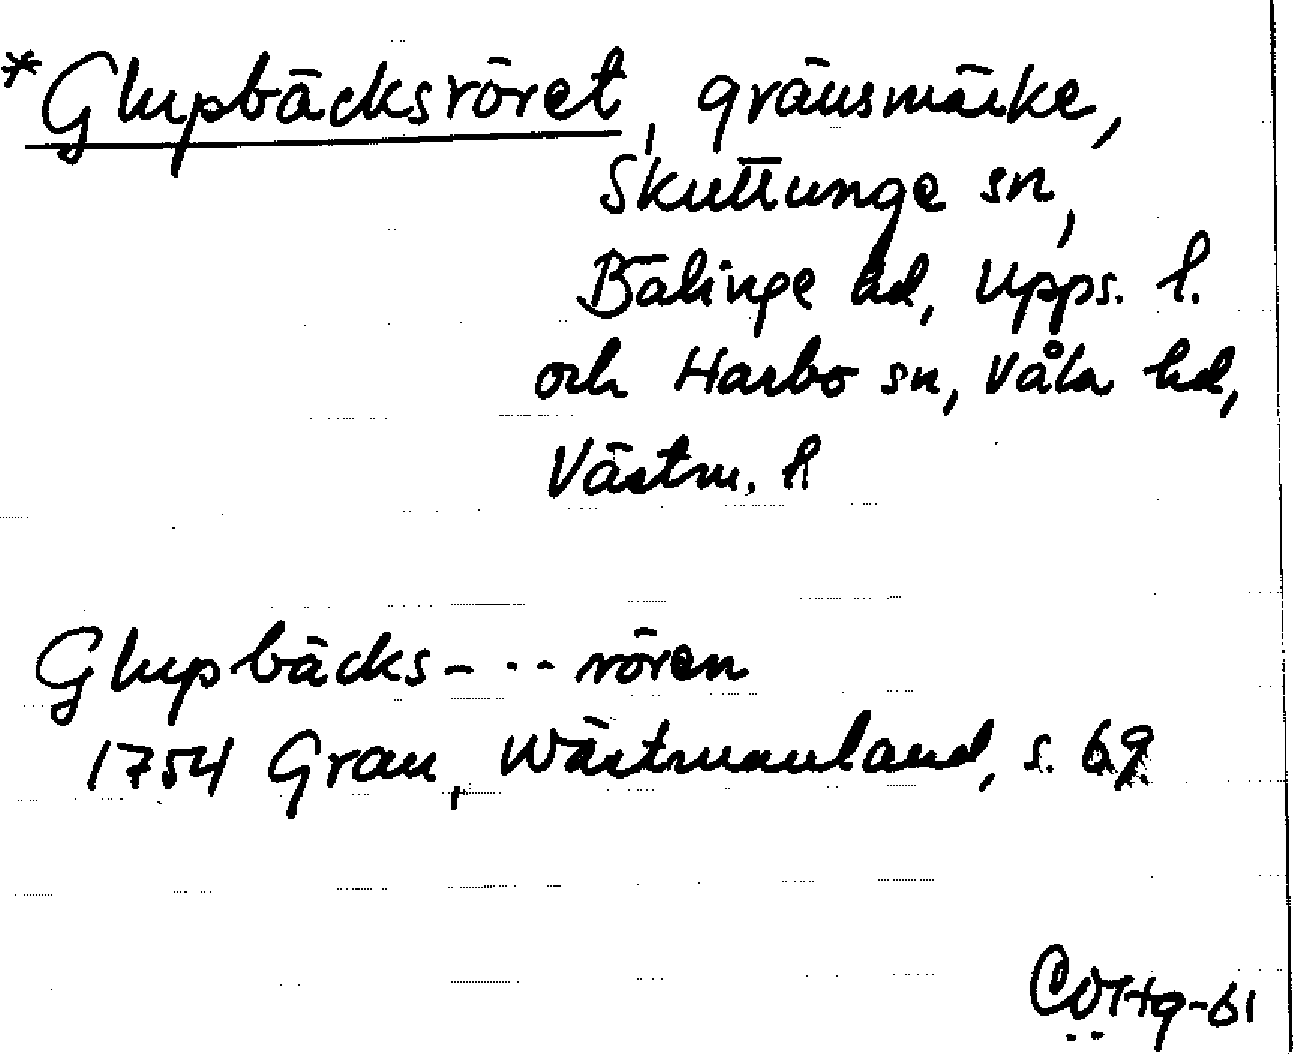 *Glupbäcksröret, gränsmärke,
Skuttunge sn,
Bälinge hd, Upps. l.
och Harbo sn, Våla hd,
Västm. l.
Glupbäcks- - - rören
1754 Grau, Wästmanland, s. 69